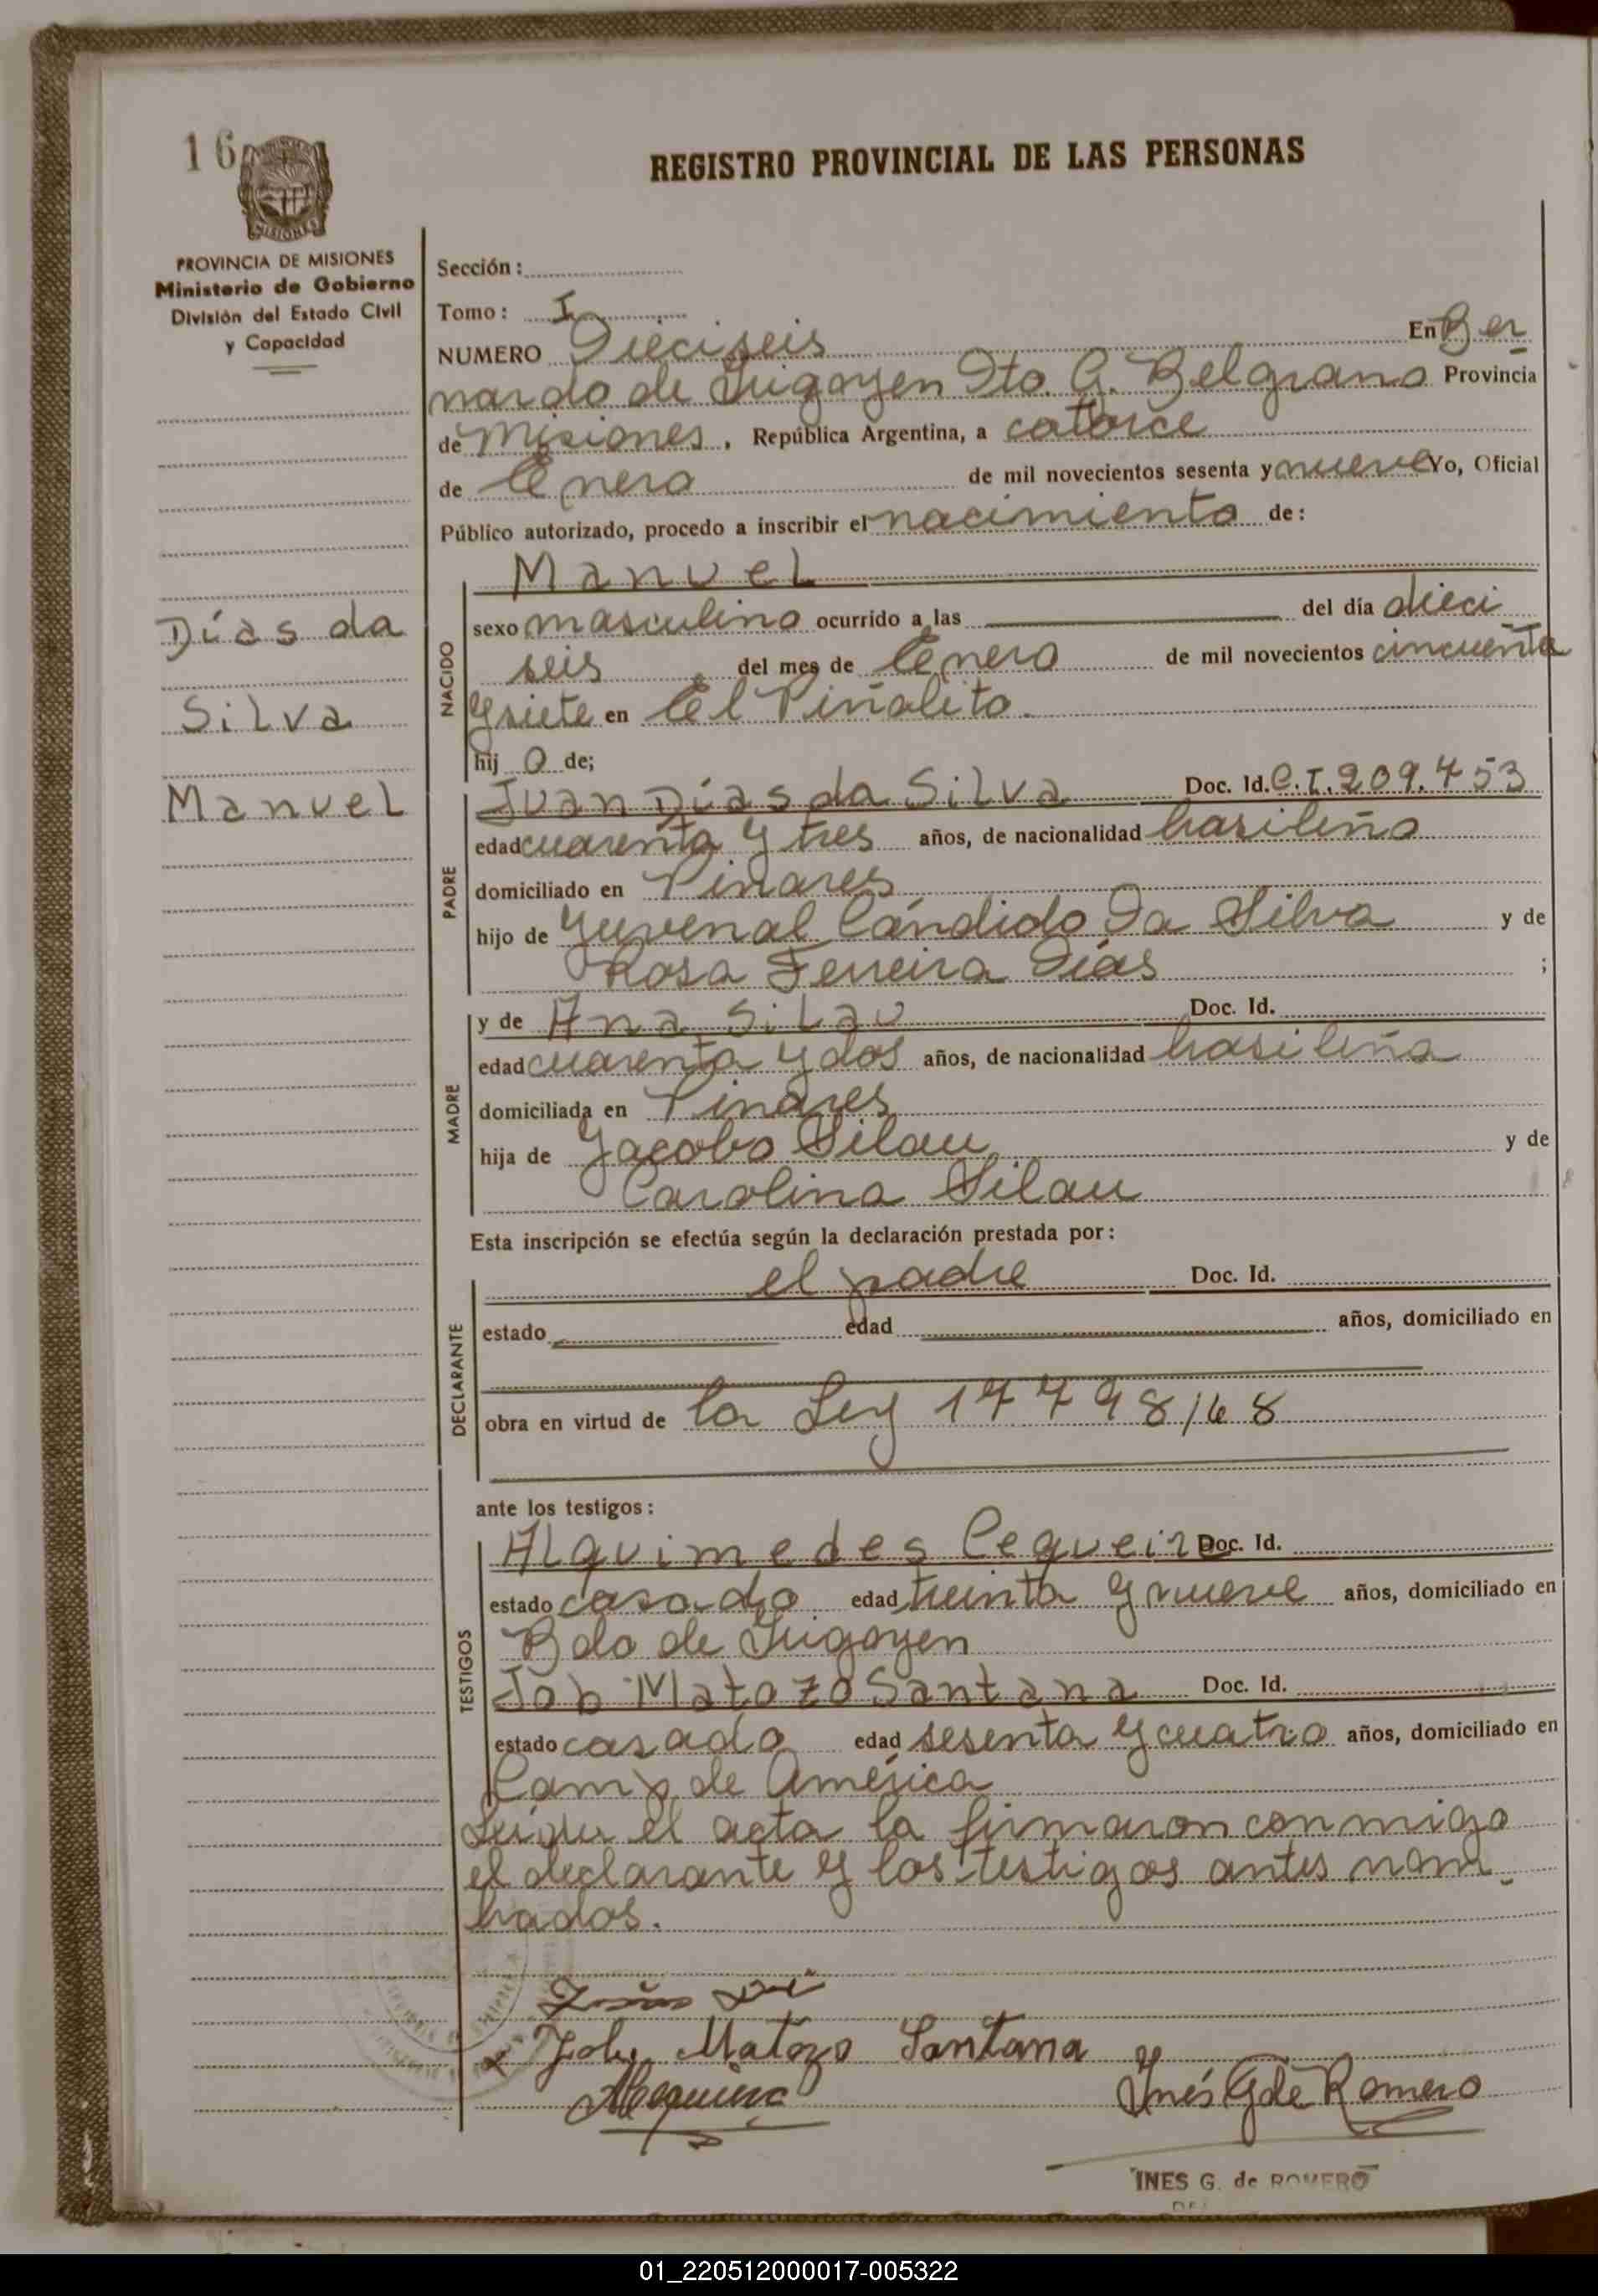 16
MISIONES
REGISTRO PROVINCIAL DE LAS PERSONAS
PROVINCIA DE MISIONES
Ministerio de Gobierno
División del Estado Civil
y Capacidad
Días da
Silva
Manuel
Sección:
Tomo: I
NUMERO Dieciseis En Ber
nardo de Irigoyen Dto. G. Belgrano Provincia
de Misiones, República Argentina, a catorce
de Enero de mil novecientos sesenta y nueve Yo, Oficial
Público autorizado, procedo a inscribir el nacimiento de:
NACIDO
Manuel
sexo masculino ocurrido a las del día dieci
seis del mes de Enero de mil novecientos cincuenta
y siete en El Piñalito.
hij o de;
PADRE
Juan Días da Silva Doc. Id. C.I. 209.453
edad cuarenta y tres años, de nacionalidad brasileño
domiciliado en Pinares
hijo de Yuvenal Cándido Da Silva y de
Rosa Ferreira Días ;
MADRE
y de Ana Silau Doc. Id.
edad cuarenta y dos años, de nacionalidad brasileña
domiciliada en Pinares
hija de Jacobo Silau y de
Carolina Silau
Esta inscripción se efectúa según la declaración prestada por:
DECLARANTE
el padre Doc. Id.
estado edad años, domiciliado en
obra en virtud de la Ley 17798/68
ante los testigos:
TESTIGOS
Alquimedes Cequeira Doc. Id.
estado casado edad treinta y nueve años, domiciliado en
Bdo de Irigoyen
Job Matozo Santana Doc. Id.
estado casado edad sesenta y cuatro años, domiciliado en
Camp. de América
Leída el acta la firmaron conmigo
el declarante y los testigos antes nom
brados.
Matozo Santana
Inés G de Romero
INES G. de ROMERO
01_220512000017-005322